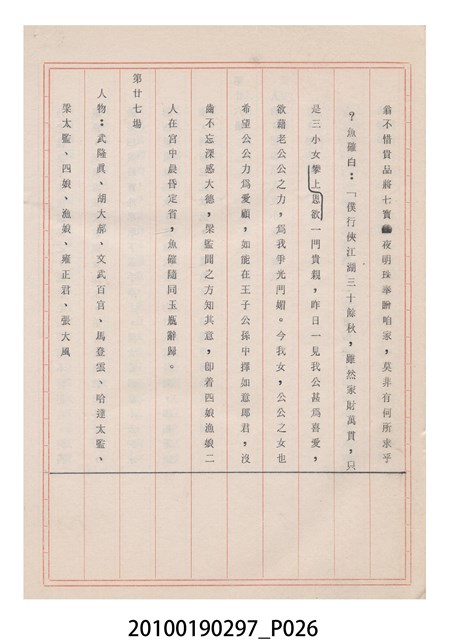 翁不惜貴品將七寶夜明珠舉贈咱家，莫非有何所求乎
？魚確白：「僕行俠江湖三十餘秋，雖然家財萬貫，只
是三小女攀上恩欲一門貴親，昨日一見我公甚爲喜愛，
欲藉老公公之力，爲我爭光門楣。今我女，公公之女也
希望公公力爲愛顧，如能在王子公孫中擇如意郎君，沒
齒不忘深感大德，梁監聞之方知其意，卽着四娘漁娘二
人在宮中晨昏定省，魚確隨同玉瓶辭歸。
第廿七場
人物：武隆眞、胡大郝、文武百官、馬登雲、哈達太監、
梁太監、四娘、漁娘、雍正君、張大風
20100190297_P026